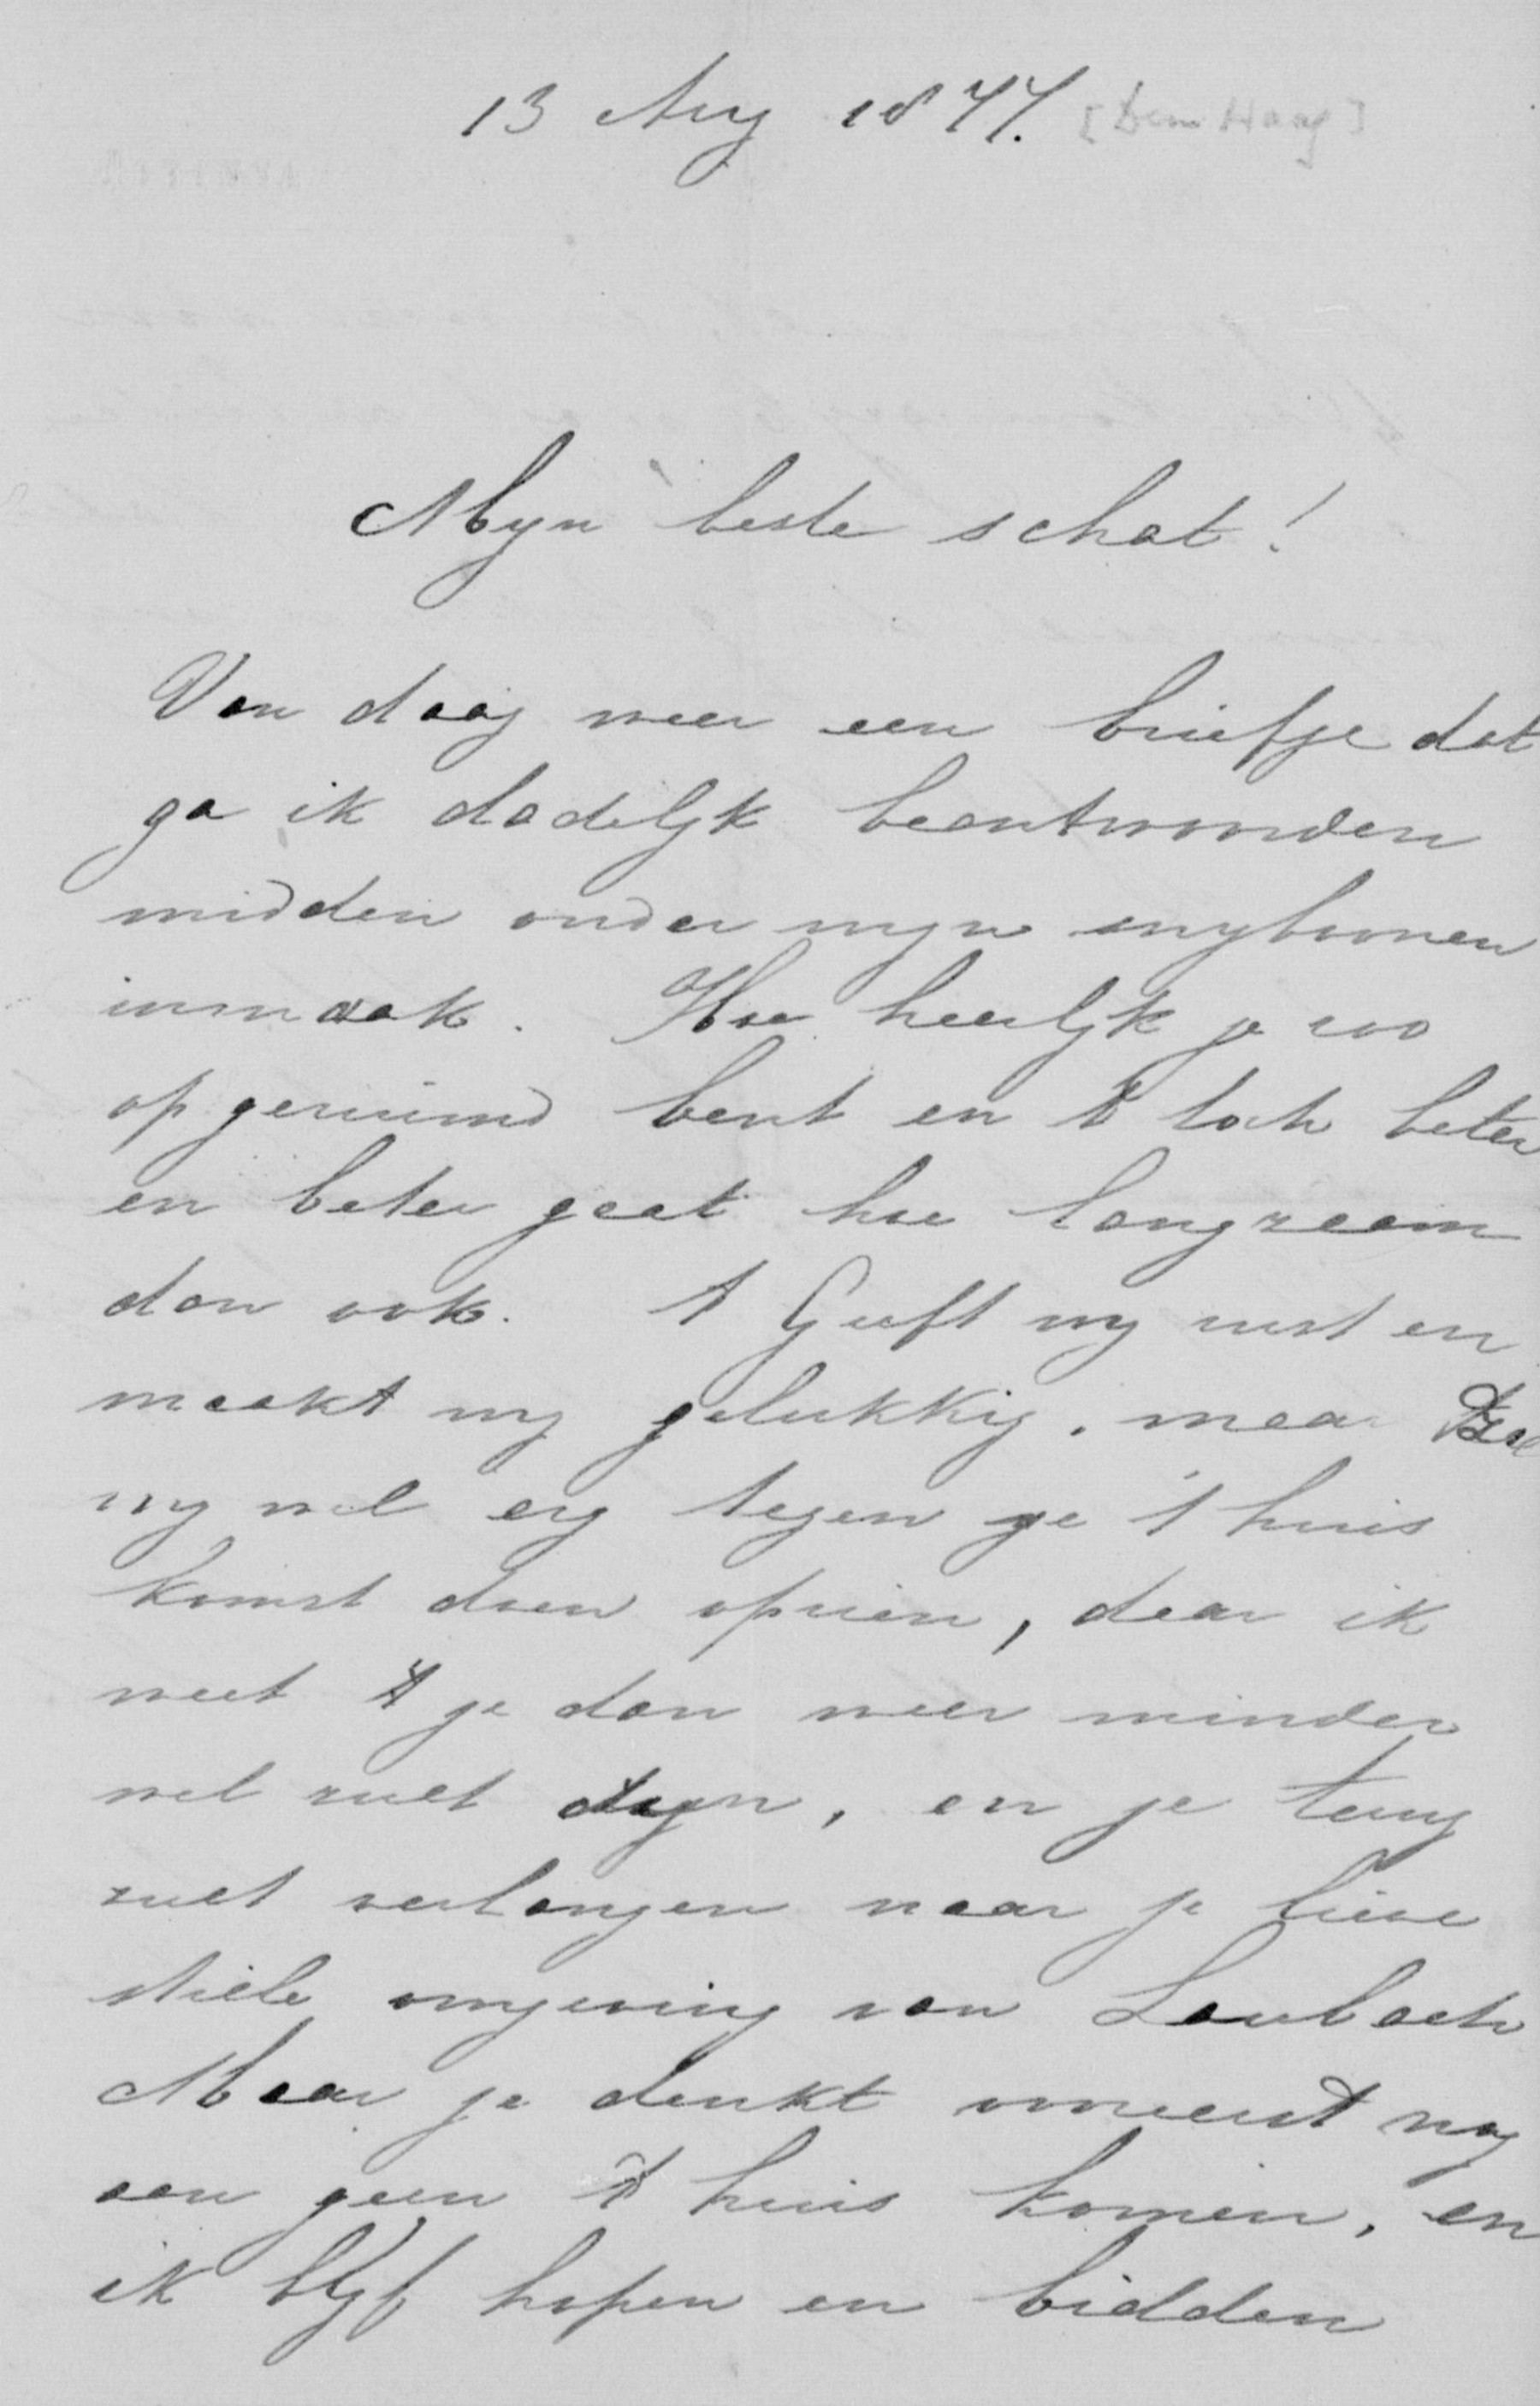 13 Aug 1877. [Den Haag]
Myn beste schat!
Van daag weer een briefje dat
ga ik dadelyk beantwoorden
midden onder myn snyboonen
inmaak. Hoe heerlyk je zoo
opgeruimd bent en 't toch beter
en beter gaat hoe langzaam
dan ook. 't Geeft my rust en
maakt my gelukkig. maar zal
my wel erg tegen je t'huis
komst doen opzien, daar ik
weet 't je dan weer minder
wel zult zyn, en je terug
zult verlangen naar je lieve
stille omgeving van Laubach
Maar je denkt vooreerst nog
aan geen t'huis komen, en
ik blyf hopen en bidden